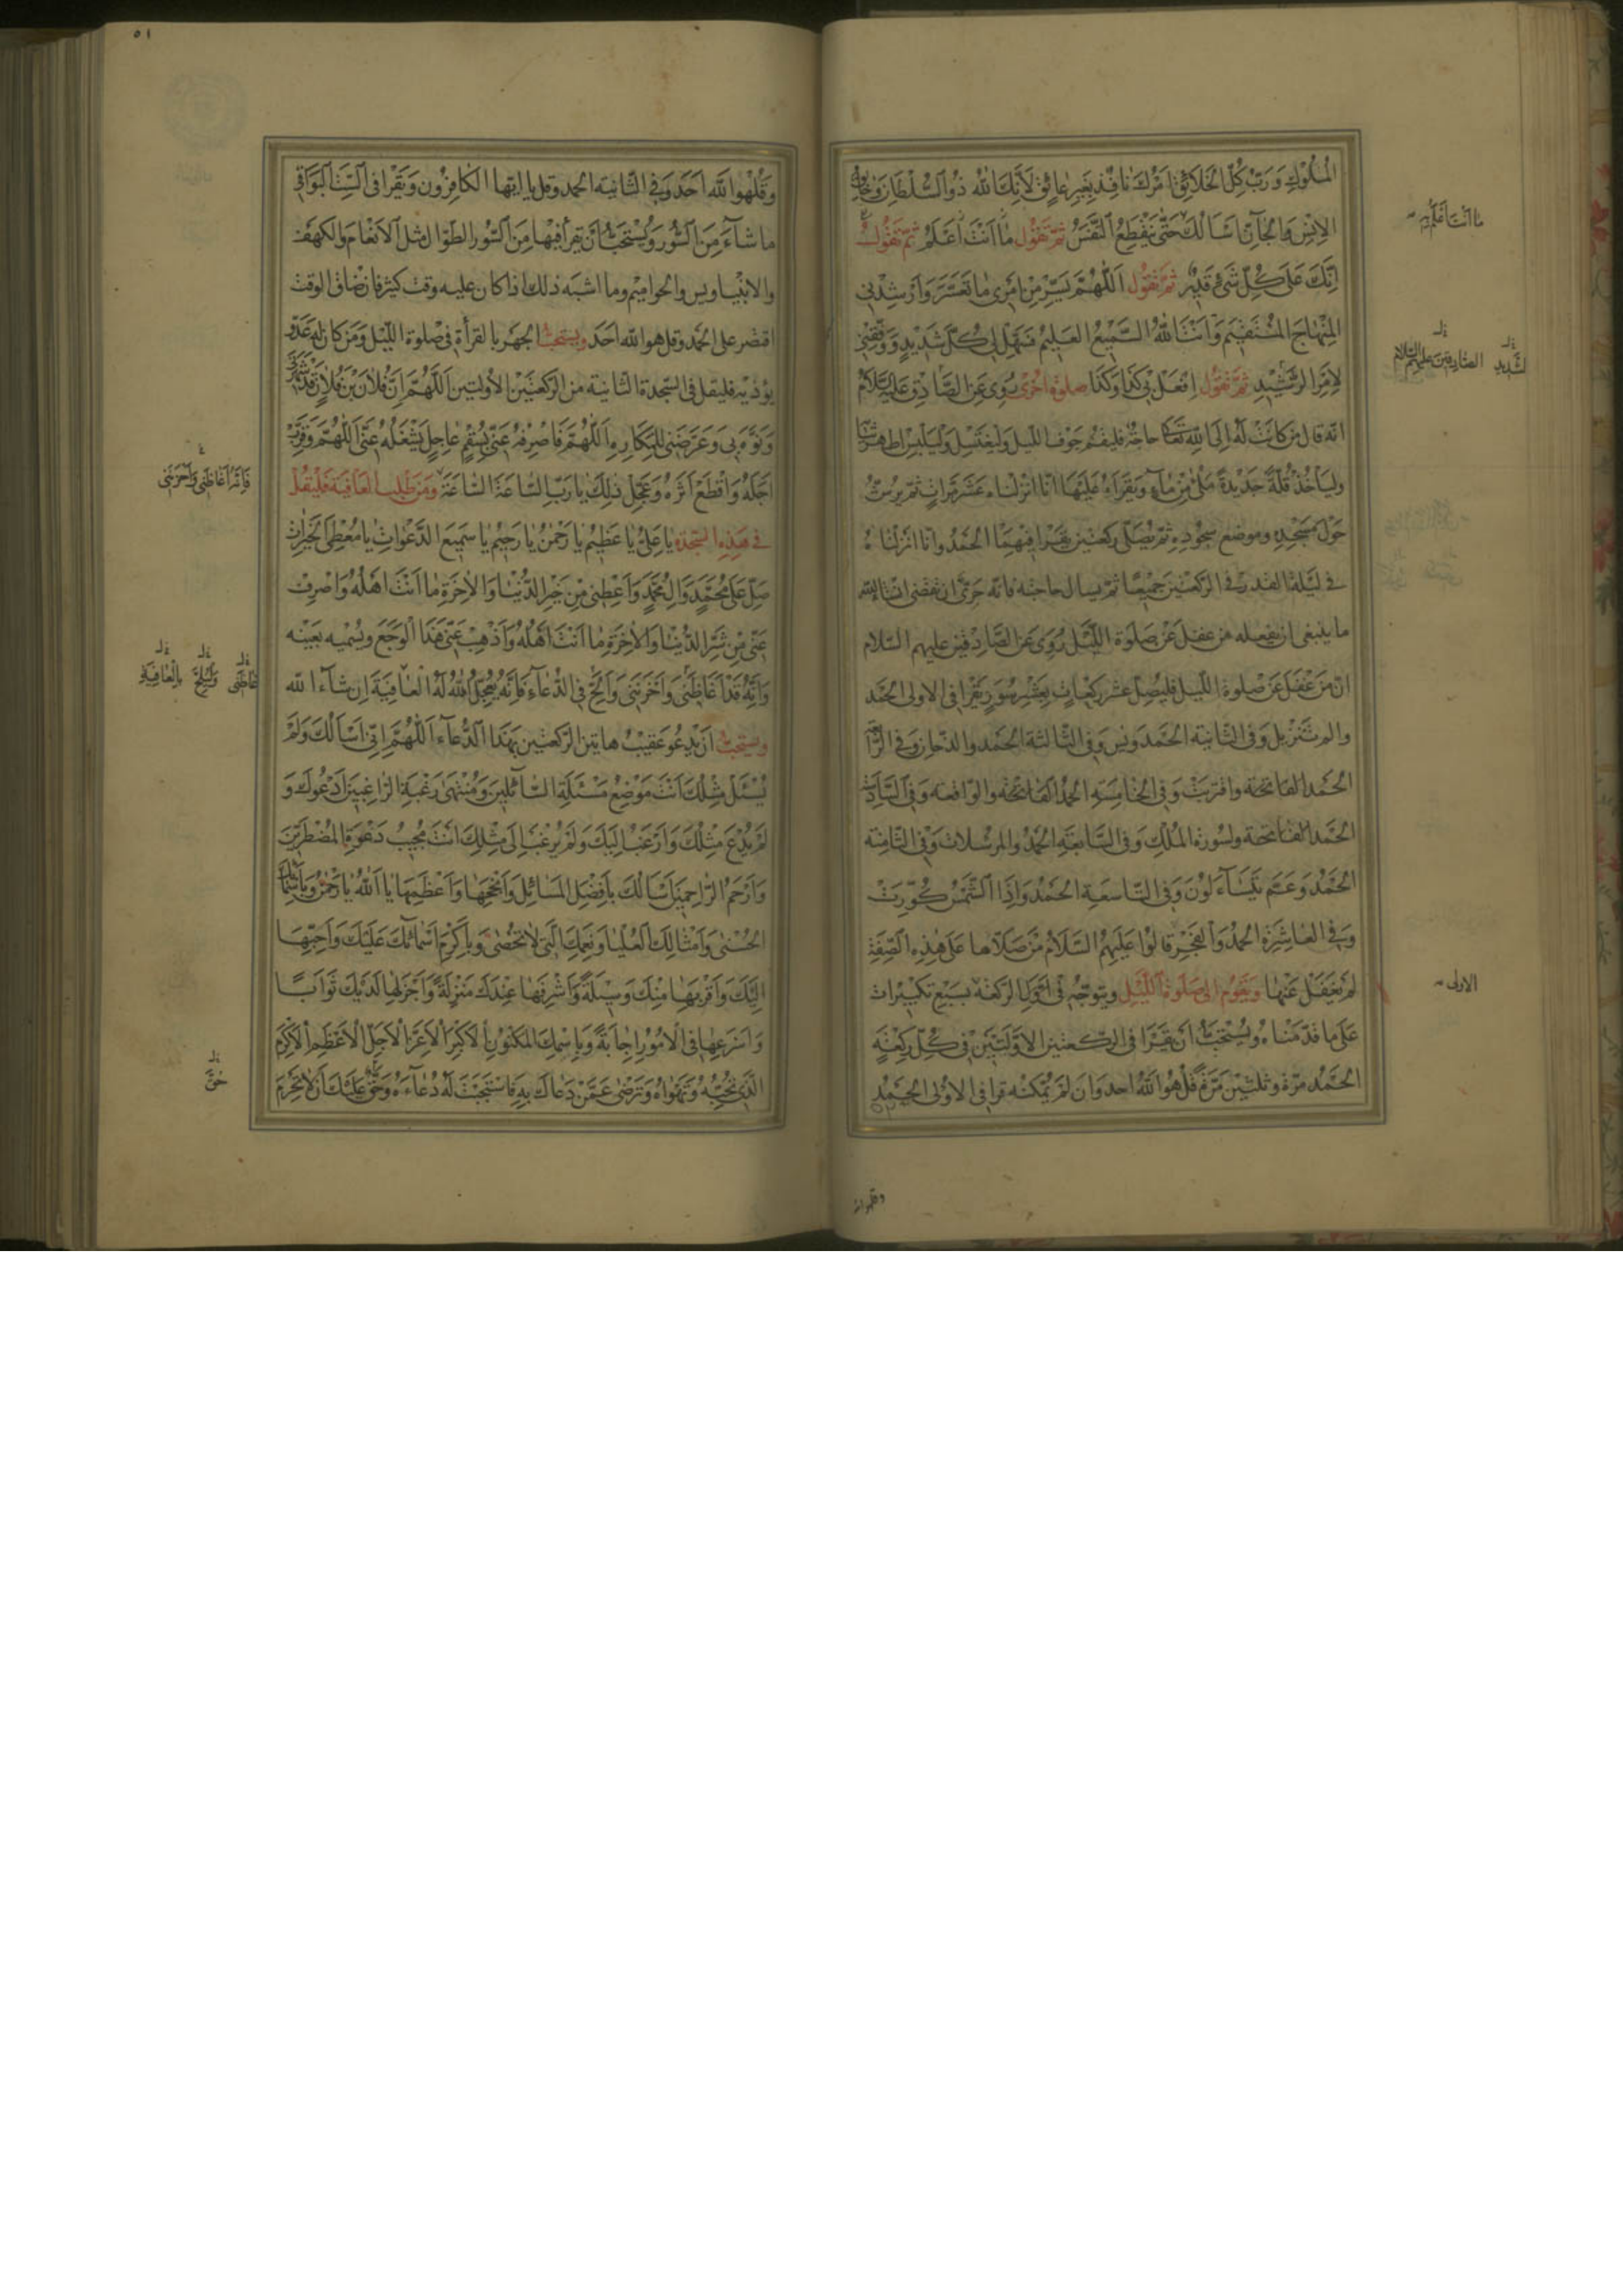 الْمُلُوكِ وَرَبَّ كُلِّ الْخَلَائِقِ اَمْرُكَ نافِذٌ بِغَيْرِ عائِقٍ لِاَنَّكَ اللهُ ذُو السُّلْطانِ وَخالِقُ
الاِنْسِ وَالْجآنِّ اَسْاَلُكَ حَتّى يَنْقَطِعَ النَّفَسُ ثُمَّ تَقُولُ ما اَنْتَ اَعْلَمُ ثُمَّ تَقُولُ
اِنَّكَ عَلى كُلِّ شَیْءٍ قَدِيرٌ ثُمَّ تَقُولُ اَللّهُمَّ يَسِّرْ مِنْ اَمْرِى ما تَعَسَّرَ وَاَرْشِدْنِى
الْمِنْهاجَ الْمُسْتَقِيمَ وَاَنْتَ اللهُ السَّمِيعُ الْعَلِيمُ فَسَهِّلْ لِى كُلَّ شَدِيدٍ وَوَفِّقْنِى
لِلْاَمْرِ الرَّشِيدِ ثُمَّ تَقُولُ اِفْعَلْ بِى كَذا وَكَذا صلوة اُخْرى رُوِىَ عَنِ الصَّادِقِ عَلَيْهِ السَّلَامُ
انّه قال مَنْ كانَتْ لَهُ اِلَى اللهِ تَعَالى حاجَةٌ فليقم جَوْف اللّيل وَليغتسل وَليلبس اطهر ثيابه
وليأخُذْ قُلَّةً جَديدةً مَلْأى مِنْ مآءٍ وَيَقْرَأ عَلَيْهَا انّا انزلناه عَشر مَرّاتٍ ثمّ يرشّ
حَوْلَ مَسْجِدِهِ وموضع سجُودِهِ ثمّ يُصَلّى ركعتين يقرأ فيهمَا الحَمْدُ وانّا انزلناهُ
في ليلة القدر في الرّكعتين جَميعًا ثمّ يسال حاجته فانّه حَرِىٌّ ان تقضى ان شاء الله
ما ينبغى ان يفعله من غفل عَنْ صَلَوة اللَّيْل رُوِىَ عَنِ الصَّادِقين عليهم السّلام
انّ مَنْ غَفَلَ عَنْ صلوة اللّيل فليُصلّ عشر ركعاتٍ بِعَشْرِ سُوَرٍ يقرا في الاولى الحَمد
والم تَنْزيل وَفى الثّانية الحَمد ويس وَفى الثّالثة الحَمد والدّخان وَفى الرّابعة
الحَمد الفاتحة واقتربَتْ وَفى الخامِسَةِ الحمد الفاتحة والواقعه وَفى السّادسة
الحَمد الفاتحة وسُورة المُلْكِ وَفى السّابعَةِ الحَمْدُ والمرسلات وَفى الثّامنة
الحَمْدُ وَعَمّ يَتَسَآءَلُونَ وَفى التّاسعَةِ الحَمْدُ وَاِذَا الشَّمْسُ كُوِّرَتْ
وَفى العاشِرَة الحمدُ وَالْفَجْرِ قالُوا عَلَيْهِمُ السَّلامُ مَنْ صَلّاها عَلى هذِهِ الصِّفَةِ
لَمْ يَغْفَلْ عَنْها وَيَقُومُ الى صَلَوة اللَّيْلِ ويتوجّه فى اوّل الركعة بسَبع تكبيرات
عَلى ما قدّمْناه ويُسْتَحَبُّ اَنْ يَقْرَا فى الرّكعتين الاوّلَتَيْنِ فى كُلِّ رَكْعَةٍ
الحَمْدُ مرّة وثلثينَ مَرّةً قُلْ هُوَ اللهُ احد وَان لَمْ يُمكنه قرا فى الاوْلى الحَمْدُ
وقلهوالله
ما اَنْتَ اَعْلَمُ بِه
الصّادقين عليهم السّلام
الاولى
٥١
وَقُلْهُوَ اللهُ اَحَد وَفى الثّانية الحمد وقل يا ايّها الكافِرُون وَيَقْرا فى السِّتّ البَواقى
ما شآءَ مِنَ السُّوَر وَيُسْتَحَبُّ اَنْ يقرأ فيْها مِنَ السُّوَر الطّوال مثل الاَنعام وَالكهف
والانبْيا ويس والحواميم وما اشبَه ذلك اذا كان عليه وقت كثير فان ضاق الوقت
اقتصر على الحَمد وقل هو الله احَد ويستحبّ الجهر بالقرأة فى صلوة اللّيْل وَمَن كان له عَدُوّ
يؤذيه فليقل فى السّجدة الثّانية من الركعتَيْن الأوليَين اَللّهُمَّ اِنَّ فُلانَ بْنَ فُلانٍ قَدْ شَهَرَنِى
وَنَوَّهَ بِى وَعَرَّضَنِى لِلْمَكارِهِ اَللّهُمَّ فَاصْرِفْهُ عَنِّى بِسُقْمٍ عاجِلٍ يَشْغَلُهُ عَنِّى اَللّهُمَّ وَقَرِّبْ
اَجَلَهُ وَاقْطَعْ اَثَرَهُ وَعَجِّلْ ذلِكَ يا رَبِّ السّاعَةَ السّاعَةَ وَمَنْ طَلب العافِيَة فَليقُل
فى هذِهِ السّجدَة يا عَلِىُّ يا عَظِيمُ يا رَحْمنُ يا رَحِيمُ يا سَمِيعَ الدَّعَواتِ يا مُعْطِىَ الْخَيْراتِ
صَلِّ عَلى مُحَمَّدٍ وَآلِ مُحَمَّدٍ وَاَعْطِنِى مِنْ خَيْرِ الدُّنْيا وَالاخِرَةِ ما اَنْتَ اَهْلُهُ وَاصْرِفْ
عَنِّى مِنْ شَرِّ الدُّنْيا وَالاخِرَةِ ما اَنْتَ اَهْلُهُ وَاَذْهِبْ عَنِّى هذَا الْوَجَعَ ويُسَمّيه بعَيْنه
وَاِنَّهُ قَدْ اَغاظَنِى وَاَحْزَنَنِى وَاَلِحَّ فِى الدُّعآءِ فَاِنَّهُ يُعَجِّلُ اللهُ لَهُ الْعافِيَةَ اِن شآءَ الله
ويستحبّ اَنْ يَدعُوَ عَقيبَ هاتين الرّكعتين بِهذَا الدُّعآءِ اَللّهُمَّ اِنِّى اَسْاَلُكَ وَلَمْ
يُسْئَلْ مِثْلُكَ اَنْتَ مَوْضِعُ مَسْئَلَةِ السّآئِلِينَ وَمُنْتَهى رَغْبَةِ الرّاغِبِينَ اَدْعُوكَ وَ
لَمْ يُدْعَ مِثْلُكَ وَاَرْغَبُ اِلَيْكَ وَلَمْ يُرْغَبْ اِلى مِثْلِكَ اَنْتَ مُجِيبُ دَعْوَةِ الْمُضْطَرِّينَ
وَاَرْحَمُ الرّاحِمِينَ اَسْاَلُكَ بِاَفْضَلِ الْمَسائِلِ وَاَنْجَحِها وَاَعْظَمِها يا اَللهُ يا رَحْمنُ وَبِاَسْمائِكَ
الْحُسْنى وَاَمْثالِكَ الْعُلْيا وَنِعَمِكَ الَّتِى لا تُحْصى وَبِاَكْرَمِ اَسْمآئِكَ عَلَيْكَ وَاَحَبِّها
اِلَيْكَ وَاَقْرَبِها مِنْكَ وَسِيلَةً وَاَشْرَفِها عِنْدَكَ مَنْزِلَةً وَاَجْزَلِها لَدَيْكَ ثَوابًا
وَاَسْرَعِها فِى الْاُمُورِ اِجابَةً وَبِاسْمِكَ الْمَكْنُونِ الْاَكْبَرِ الْاَعَزِّ الْاَجَلِّ الْاَعْظَمِ الْاَكْرَمِ
الَّذِى تُحِبُّهُ وَتَهْواهُ وَتَرْضى عَمَّنْ دَعاكَ بِهِ فَاسْتَجَبْتَ لَهُ دُعآءَهُ وَحَقٌّ عَلَيْكَ اَنْ لا تَحْرِمَ
فَاِنَّهُ اَغاظَنِى وَاَحْزَنَنِى
غاظَنِى وَلْيُلِحَّ بِالْعافِيَةِ
حَقَّ